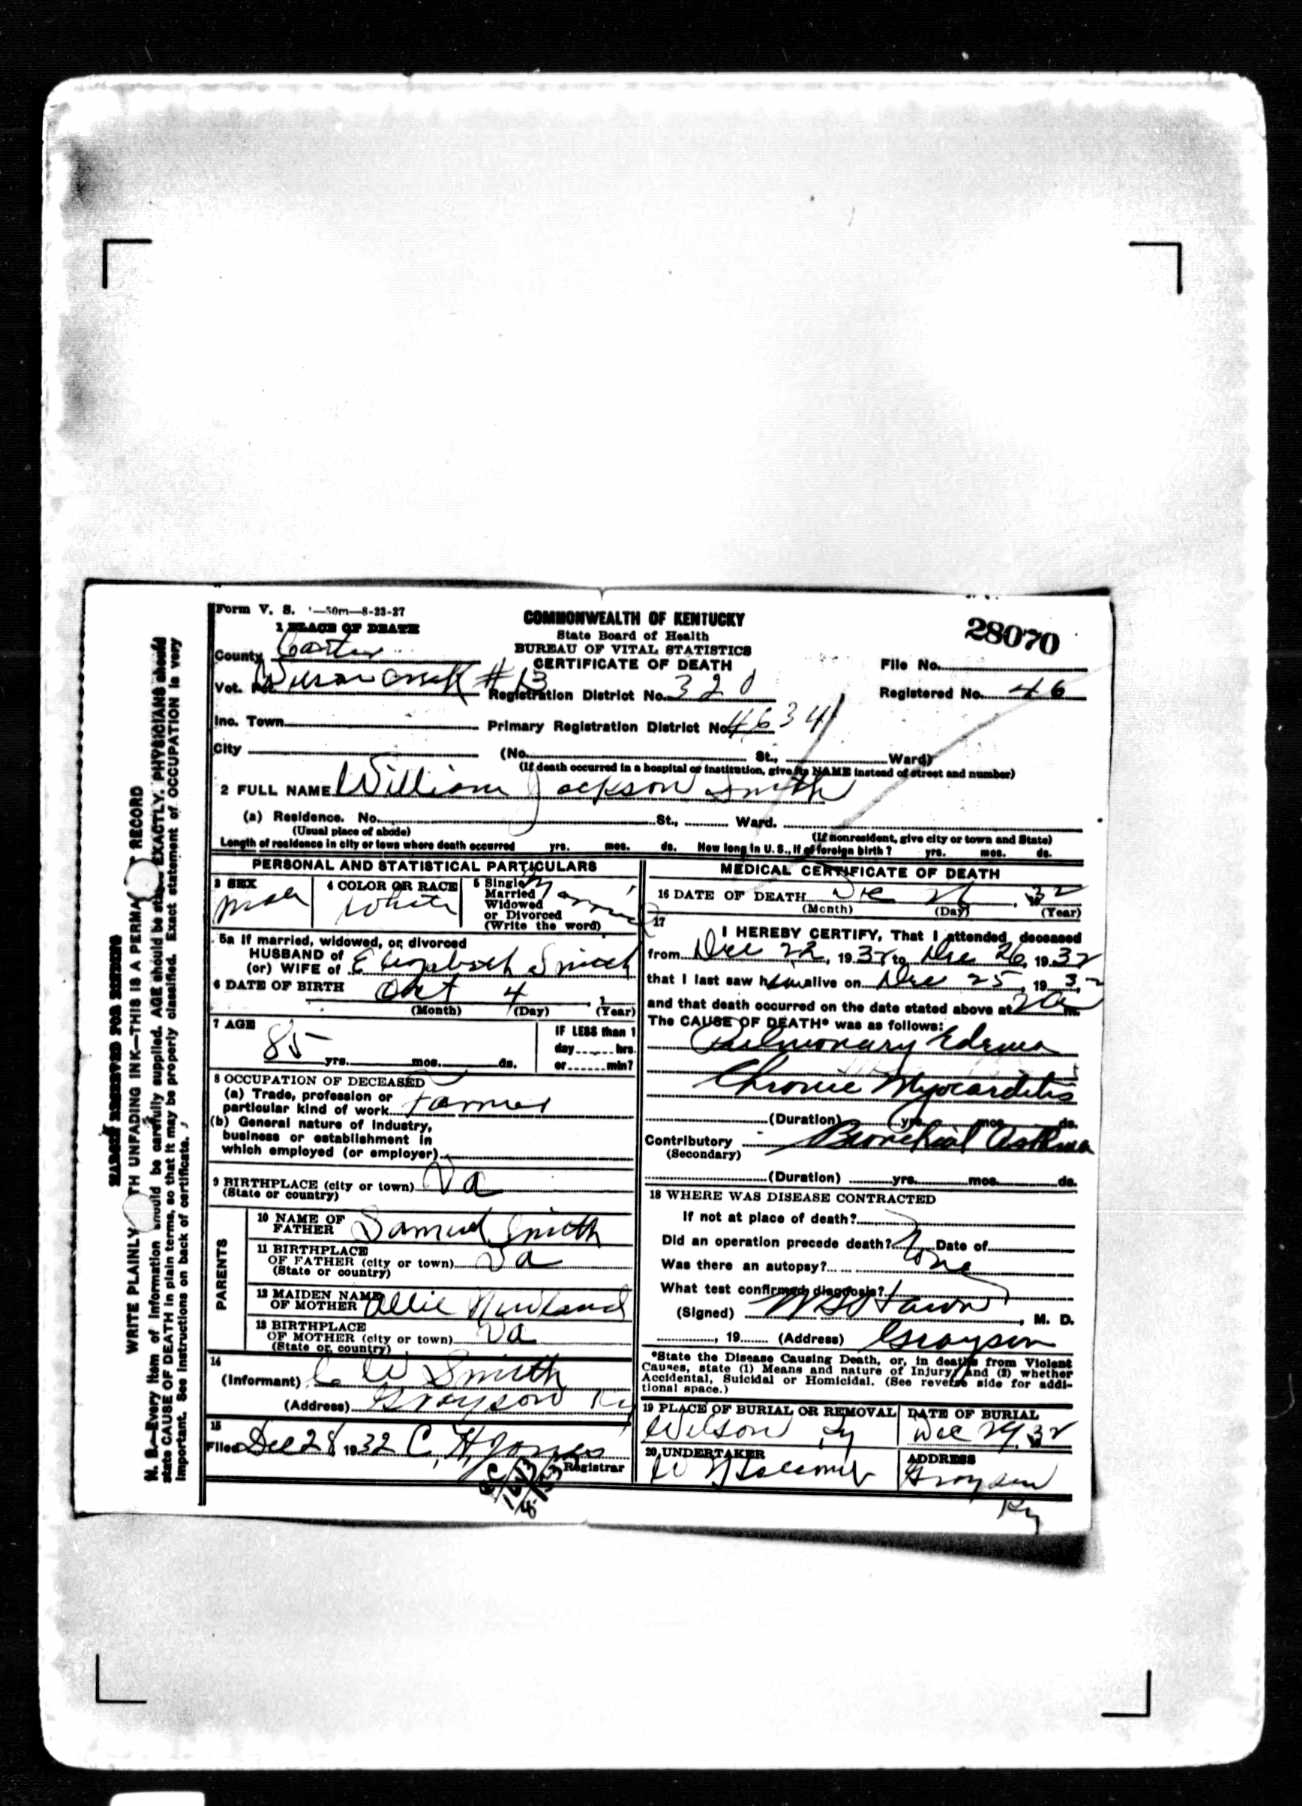 Form V. S. 1—50m—8-23-27
COMMONWEALTH OF KENTUCKY
State Board of Health
BUREAU OF VITAL STATISTICS
CERTIFICATE OF DEATH
28070
1 PLACE OF DEATH
County Carter
File No.
Vot. Pct. Wilson Creek #13
Registration District No. 320
Registered No. 46
Inc. Town
Primary Registration District No. 4634
City (No. St., Ward)
(If death occurred in a hospital or institution, give its NAME instead of street and number)
2 FULL NAME William Jackson Smith
(a) Residence. No. St., Ward.
(Usual place of abode) (If nonresident, give city or town and State)
Length of residence in city or town where death occurred yrs. mos. ds. How long in U. S., if of foreign birth? yrs. mos. ds.
PERSONAL AND STATISTICAL PARTICULARS
3 SEX
Male
4 COLOR OR RACE
White
5 Single
Married
Widowed
or Divorced
(Write the word)
Married
5a If married, widowed, or divorced
HUSBAND of
(or) WIFE of Elizabeth Smith
6 DATE OF BIRTH Oct 4
(Month) (Day) (Year)
7 AGE
85 yrs. mos. ds.
IF LESS than 1
day hrs.
or min?
8 OCCUPATION OF DECEASED
(a) Trade, profession or
particular kind of work Farmer
(b) General nature of industry,
business or establishment in
which employed (or employer)
9 BIRTHPLACE (city or town) Va
(State or country)
PARENTS
10 NAME OF
FATHER Samuel Smith
11 BIRTHPLACE
OF FATHER (city or town) Va
(State or country)
12 MAIDEN NAME
OF MOTHER Allie Newland
13 BIRTHPLACE
OF MOTHER (city or town) Va
(State or country)
14
(Informant) C W Smith
(Address) Grayson Ky
15
Filed Dec 28 1932 C. H. Jones
Registrar
MEDICAL CERTIFICATE OF DEATH
16 DATE OF DEATH Dec 26, 32
(Month) (Day) (Year)
17
I HEREBY CERTIFY, That I attended deceased
from Dec 22, 1932 to Dec 26, 1932
that I last saw him alive on Dec 25, 1932
and that death occurred on the date stated above at 2 a m.
The CAUSE OF DEATH* was as follows:
Pulmonary Edema
Chronic Myocarditis
(Duration) yrs. mos. ds.
Contributory Bronchial Asthma
(Secondary)
(Duration) yrs. mos. ds.
18 WHERE WAS DISEASE CONTRACTED
If not at place of death?
Did an operation precede death? Date of
None
Was there an autopsy?
What test confirmed diagnosis?
(Signed) , M. D.
, 19 (Address) Grayson
*State the Disease Causing Death, or, in deaths from Violent
Causes, state (1) Means and nature of Injury; and (2) whether
Accidental, Suicidal or Homicidal. (See reverse side for addi-
tional space.)
19 PLACE OF BURIAL OR REMOVAL
Wilson Ky
DATE OF BURIAL
Dec 29, 32
20 UNDERTAKER
ADDRESS
Grayson
Ky
MARGIN RESERVED FOR BINDING
WRITE PLAINLY WITH UNFADING INK—THIS IS A PERMA T RECORD
N. B.—Every item of information should be carefully supplied. AGE should be stated EXACTLY. PHYSICIANS should
state CAUSE OF DEATH in plain terms, so that it may be properly classified. Exact statement of OCCUPATION is very
important. See instructions on back of certificate.